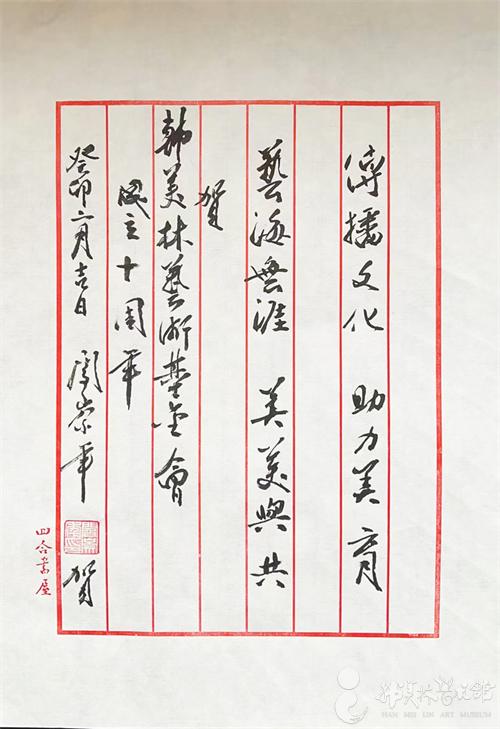 傳播文化 助力美育
藝海無涯 美美與共
賀
韩美林藝術基金會
成立十周年
癸卯六月吉日 阎崇年 賀
四合書屋
韩美林艺术馆
HAN MEI LIN ART MUSEUM